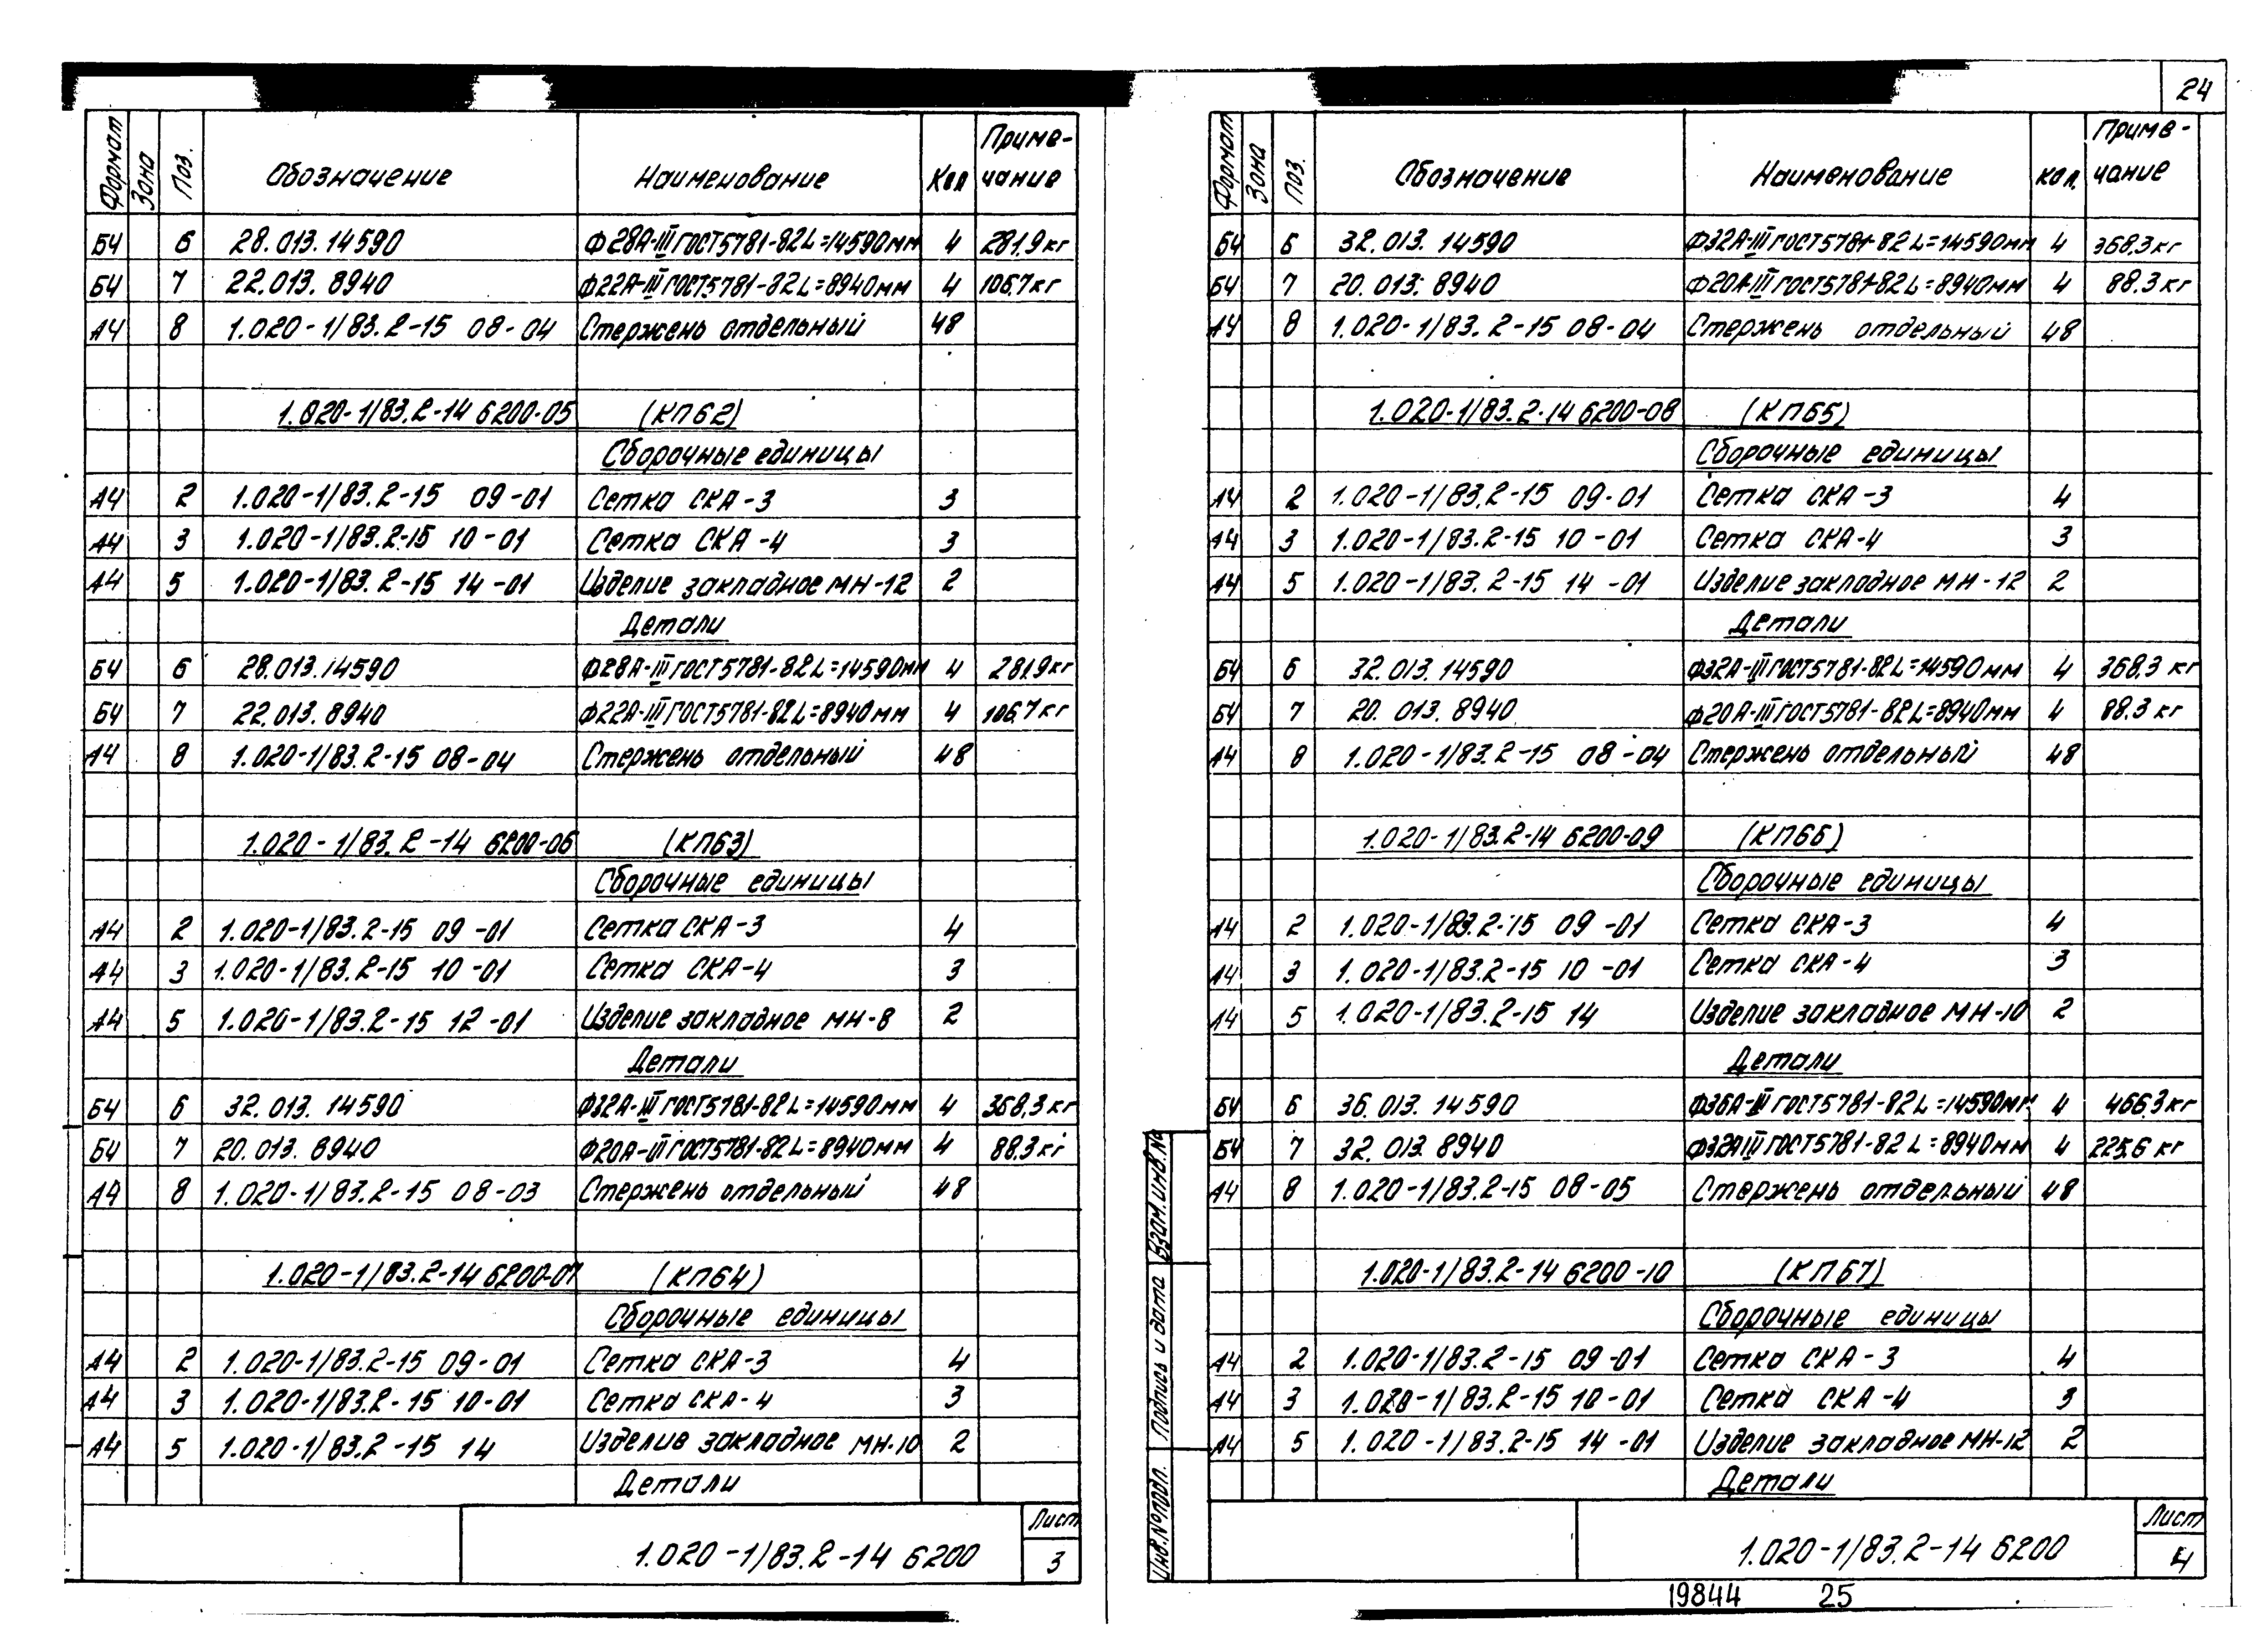 24
Формат Зона Поз. Обозначение Наименование Кол Приме-чание
БЧ 6 28.013.14590 Ф28А-III ГОСТ5781-82 L=14590мм 4 281,9кг
БЧ 7 22.013.8940 Ф22А-III ГОСТ5781-82 L=8940мм 4 106,7кг
А4 8 1.020-1/83.2-15 08-04 Стержень отдельный 48
1.020-1/83.2-14 6200-05 (КП62)
Сборочные единицы
А4 2 1.020-1/83.2-15 09-01 Сетка СКА-3 3
А4 3 1.020-1/83.2-15 10-01 Сетка СКА-4 3
А4 5 1.020-1/83.2-15 14-01 Изделие закладное МН-12 2
Детали
БЧ 6 28.013.14590 Ф28А-III ГОСТ5781-82 L=14590мм 4 281,9кг
БЧ 7 22.013.8940 Ф22А-III ГОСТ5781-82 L=8940мм 4 106,7кг
А4 8 1.020-1/83.2-15 08-04 Стержень отдельный 48
1.020-1/83.2-14 6200-06 (КП63)
Сборочные единицы
А4 2 1.020-1/83.2-15 09-01 Сетка СКА-3 4
А4 3 1.020-1/83.2-15 10-01 Сетка СКА-4 3
А4 5 1.020-1/83.2-15 12-01 Изделие закладное МН-8 2
Детали
БЧ 6 32.013.14590 Ф32А-III ГОСТ5781-82 L=14590мм 4 368,3кг
БЧ 7 20.013.8940 Ф20А-III ГОСТ5781-82 L=8940мм 4 88.3кг
А4 8 1.020-1/83.2-15 08-03 Стержень отдельный 48
1.020-1/83.2-14 6200-07 (КП64)
Сборочные единицы
А4 2 1.020-1/83.2-15 09-01 Сетка СКА-3 4
А4 3 1.020-1/83.2-15 10-01 Сетка СКА-4 3
А4 5 1.020-1/83.2-15 14 Изделие закладное МН-10 2
Детали
1.020-1/83.2-14 6200
Лист
3
Формат Зона Поз. Обозначение Наименование кол. Приме-чание
БЧ 6 32.013.14590 Ф32А-III ГОСТ5781-82 L=14590мм 4 368,3кг
БЧ 7 20.013.8940 Ф20А-III ГОСТ5781-82 L=8940мм 4 88.3кг
А4 8 1.020-1/83.2-15 08-04 Стержень отдельный 48
1.020-1/83.2-14 6200-08 (КП65)
Сборочные единицы
А4 2 1.020-1/83.2-15 09-01 Сетка СКА-3 4
А4 3 1.020-1/83.2-15 10-01 Сетка СКА-4 3
А4 5 1.020-1/83.2-15 14-01 Изделие закладное МН-12 2
Детали
БЧ 6 32.013.14590 Ф32А-III ГОСТ5781-82 L=14590мм 4 368,3 кг
БЧ 7 20.013.8940 Ф20А-III ГОСТ5781-82 L=8940мм 4 88.3 кг
А4 8 1.020-1/83.2-15 08-04 Стержень отдельный 48
1.020-1/83.2-14 6200-09 (КП66)
Сборочные единицы
А4 2 1.020-1/83.2-15 09-01 Сетка СКА-3 4
А4 3 1.020-1/83.2-15 10-01 Сетка СКА-4 3
А4 5 1.020-1/83.2-15 14 Изделие закладное МН-10 2
Детали
БЧ 6 36.013.14590 Ф36А-III ГОСТ5781-82 L=14590мм 4 466,3кг
БЧ 7 32.013.8940 Ф32АIII ГОСТ5781-82 L=8940мм 4 225,6 кг
А4 8 1.020-1/83.2-15 08-05 Стержень отдельный 48
1.020-1/83.2-14 6200-10 (КП67)
Сборочные единицы
А4 2 1.020-1/83.2-15 09-01 Сетка СКА-3 4
А4 3 1.020-1/83.2-15 10-01 Сетка СКА-4 3
А4 5 1.020-1/83.2-15 14-01 Изделие закладное МН-12 2
Детали
Инв.№подл. Подпись и дата Взам.инв.№
1.020-1/83.2-14 6200
Лист
4
19844 25